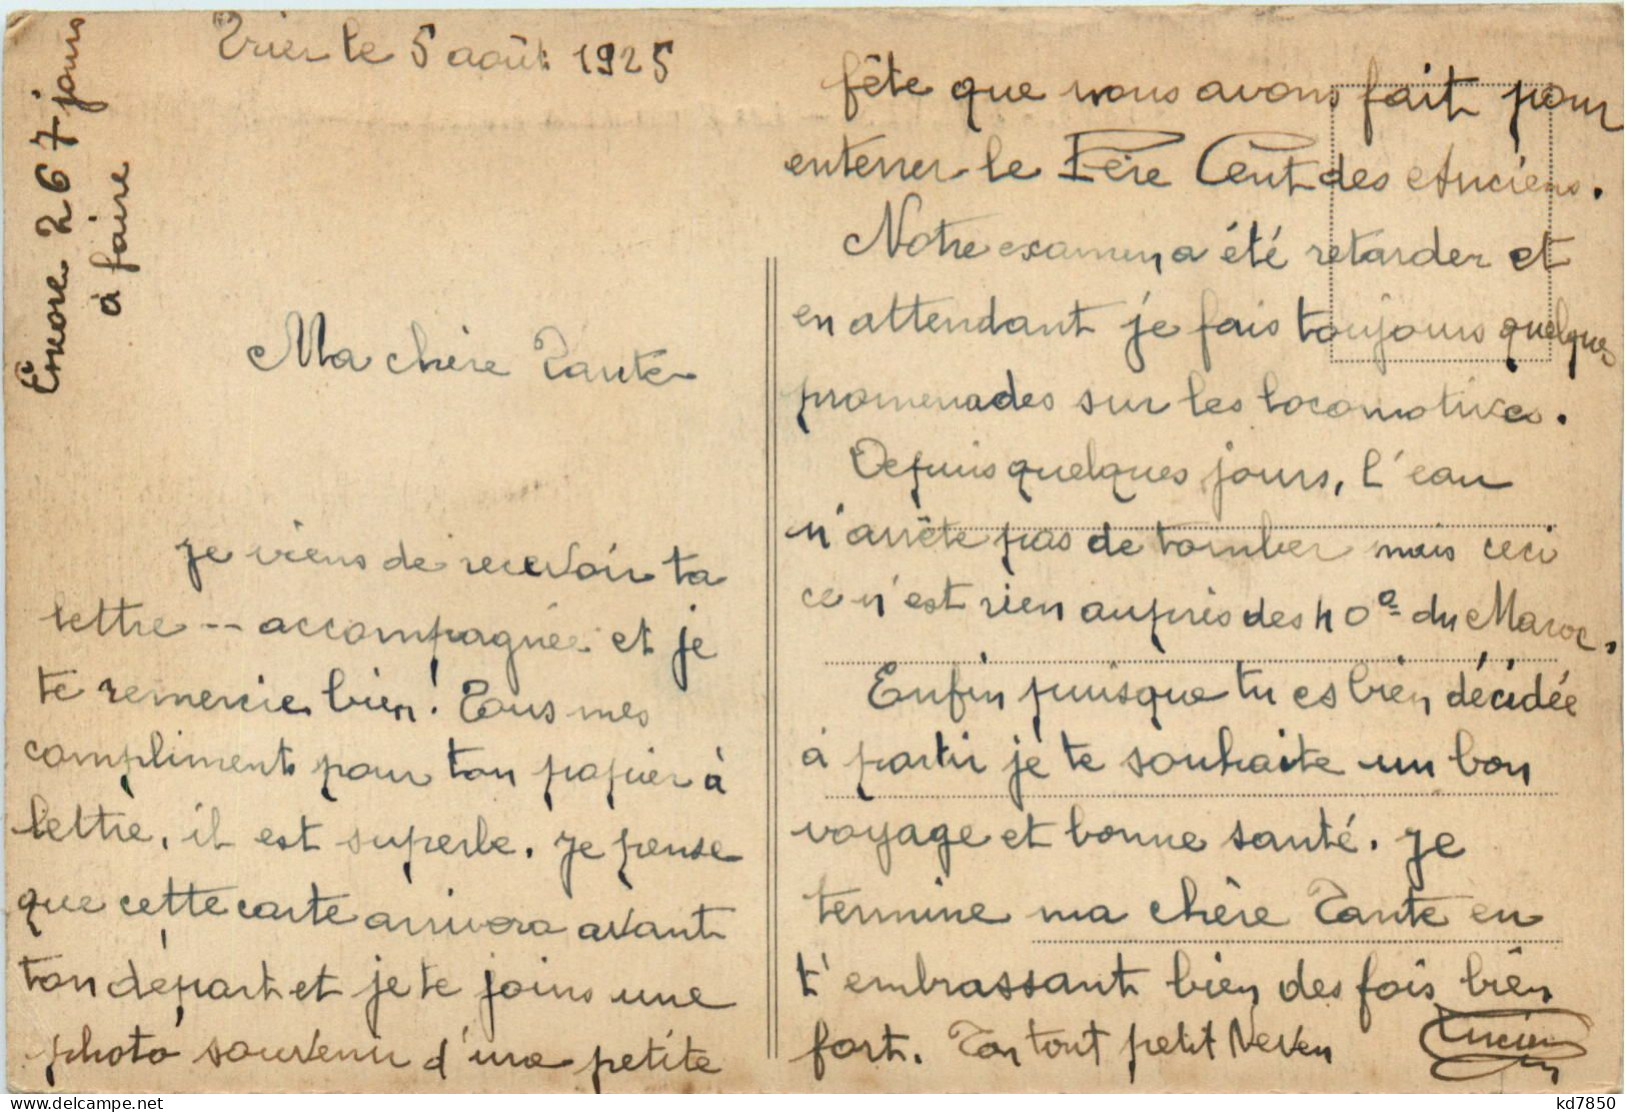 Trier le 5 août 1925
Encore 267 jours
à faire
Ma chère Tante
je viens de recevoir ta
lettre -- accompagnée et je
te remercie bien. Tous mes
compliments pour ton papier à
lettre, il est superbe. Je pense
que cette carte arrivera avant
ton départ et je te joins une
photo souvenir d'une petite
fête que nous avons fait pour
enterrer le Père Cent des Anciens.
Notre examen a été retarder et
en attendant je fais toujours quelques
promenades sur les locomotives.
Depuis quelques jours, l'eau
n'arrête pas de tomber mais ceci
ce n'est rien auprès des 40° du Maroc.
Enfin puisque tu es bien décidée
à partir je te souhaite un bon
voyage et bonne santé. Je
termine ma chère Tante en
t'embrassant bien des fois bien
fort. Ton tout petit Neveu Lucien
kd7850